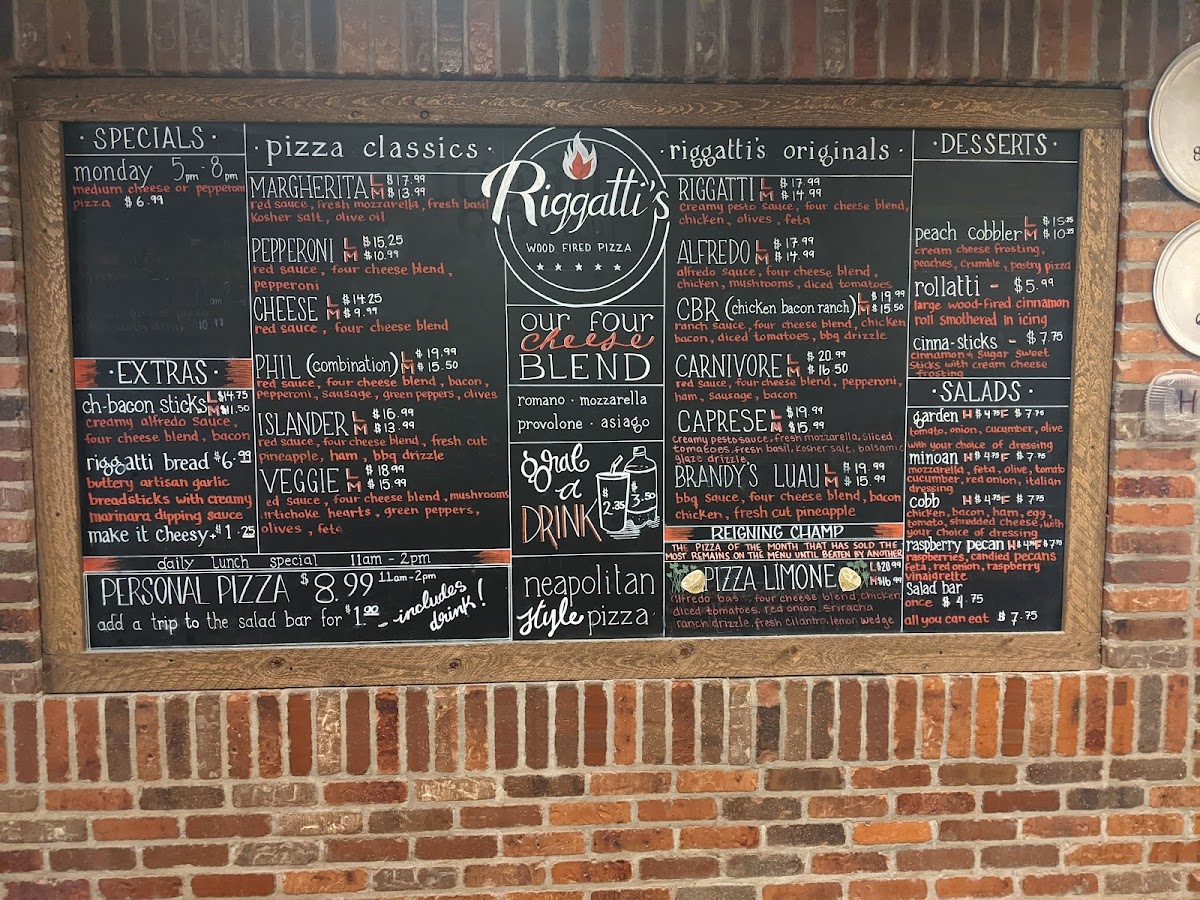 · SPECIALS ·
monday 5pm - 8pm
medium cheese or pepperoni
pizza $6.99
· EXTRAS ·
ch-bacon sticks L $14.75
M $11.50
creamy alfredo sauce,
four cheese blend, bacon
riggatti bread $6.99
buttery artisan garlic
breadsticks with creamy
marinara dipping sauce
make it cheesy +$1.25
daily lunch special 11am - 2pm
PERSONAL PIZZA $8.99 11am-2pm
add a trip to the salad bar for $1.00 - includes
drink!
· pizza classics ·
MARGHERITA L $17.99
M $13.99
red sauce, fresh mozzarella, fresh basil
Kosher salt, olive oil
PEPPERONI L $15.25
M $10.99
red sauce, four cheese blend,
pepperoni
CHEESE L $14.25
M $9.99
red sauce, four cheese blend
PHIL (combination) L $19.99
M $15.50
red sauce, four cheese blend, bacon,
pepperoni, sausage, green peppers, olives
ISLANDER L $16.99
M $13.99
red sauce, four cheese blend, fresh cut
pineapple, ham, bbq drizzle
VEGGIE L $18.99
M $15.99
ed sauce, four cheese blend, mushrooms
artichoke hearts, green peppers,
olives, feta
Riggatti's
WOOD FIRED PIZZA
our four
cheese
BLEND
romano · mozzarella
provolone · asiago
grab
a
DRINK
$2.35
$3.50
neapolitan
style pizza
· riggatti's originals ·
RIGGATTI L $17.99
M $14.99
Creamy pesto sauce, four cheese blend,
chicken, olives, feta
ALFREDO L $17.99
M $14.99
alfredo sauce, four cheese blend,
chicken, mushrooms, diced tomatoes
CBR (chicken bacon ranch) L $19.99
M $15.50
ranch sauce, four cheese blend, chicken
bacon, diced tomatoes, bbq drizzle
CARNIVORE L $20.99
M $16.50
red sauce, four cheese blend, pepperoni,
ham, sausage, bacon
CAPRESE L $19.99
M $15.99
creamy pesto sauce, fresh mozzarella, sliced
tomatoes, fresh basil, kosher salt, balsamic
glaze drizzle
BRANDY'S LUAU L $19.99
M $15.99
bbq sauce, four cheese blend, bacon
chicken, fresh cut pineapple
REIGNING CHAMP
THE PIZZA OF THE MONTH THAT HAS SOLD THE
MOST REMAINS ON THE MENU UNTIL BEATEN BY ANOTHER
PIZZA LIMONE L $20.99
M $16.99
alfredo bas , four cheese blend, chicken,
diced tomatoes, red onion, sriracha
ranch drizzle, fresh cilantro, lemon wedge
· DESSERTS ·
peach cobbler L $15.25
M $10.25
cream cheese frosting,
peaches, crumble, pastry pizza
rollatti - $5.99
large wood-fired cinnamon
roll smothered in icing
cinna-sticks - $7.75
cinnamon & sugar sweet
sticks with cream cheese
frosting
· SALADS ·
garden H $4.75 F $7.75
tomato, onion, cucumber, olive
with your choice of dressing
minoan H $4.75 F $7.75
mozzarella, feta, olive, tomato
cucumber, red onion, italian
dressing
cobb H $4.75 F $7.75
chicken, bacon, ham, egg,
tomato, shredded cheese, with
your choice of dressing
raspberry pecan H $4.75 F $7.75
raspberries, candied pecans
feta, red onion, raspberry
vinaigrette
Salad bar
once $4.75
all you can eat $7.75
H